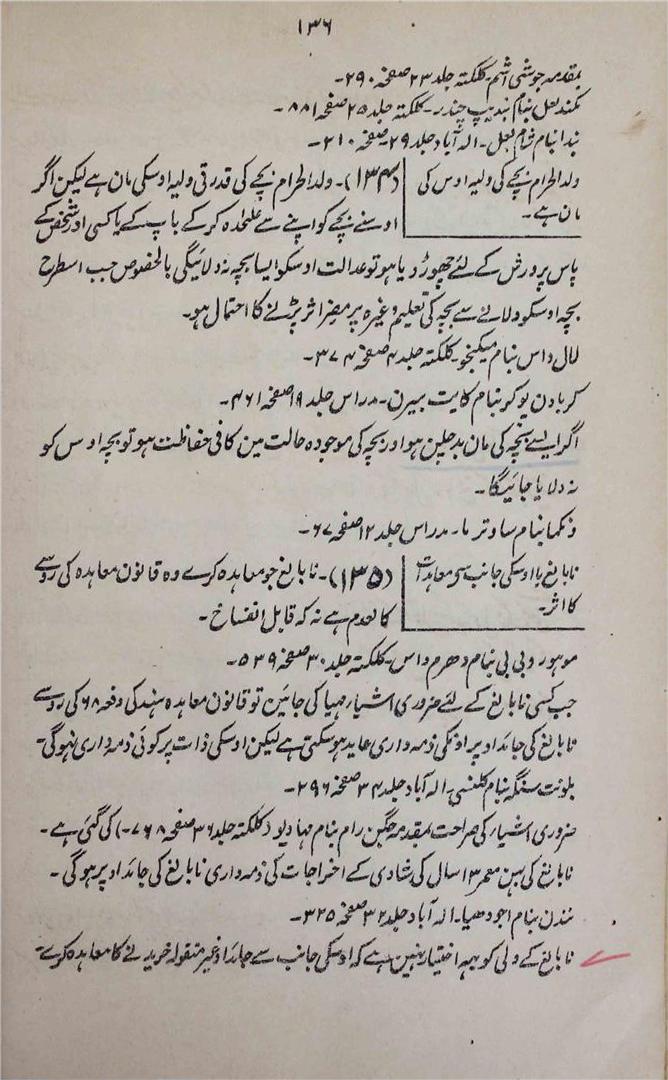 ۱۳۶
بمقدمہ جوشی اشم۔ کلکتہ جلد ۲۳ صفحہ ۲۹۰۔
مکندلعل بنام نبدیپ چندر۔ کلکتہ جلد ۲۵ صفحہ ۸۸۱۔
بندا بنام شام لعل۔ الہ آباد جلد ۲۹۔ صفحہ ۲۱۰۔
ولد الحرام بچے کی ولیہ اوس کی
مان ہے۔
(۱۳۴)۔ ولد الحرام بچے کی قدرتی ولیہ اوسکی مان ہے لیکن اگر
اوسنے بچے کو اپنے سے علیحدہ کرکے باپ کے یا کسی اور شخص کے
پاس پرورش کے لئے چھوڑ دیا ہو تو عدالت اوسکو ایسا بچہ نہ دلائیگی بالخصوص جب اسطرح
بچہ اوسکو دلانے سے بچہ کی تعلیم وغیرہ پر مضر اثر پڑنے کا احتمال ہو۔
لال داس بنام میکنجو۔ کلکتہ جلد ۴ صفحہ ۳۷۴۔
کربادن یوکر بنام کایت بیرن۔ مدراس جلد ۱۹ صفحہ ۴۶۱۔
اگر ایسے بچہ کی مان بدچلین ہو اور بچہ کی موجودہ حالت مین کافی حفاظت ہو تو بچہ اوس کو
نہ دلایا جائیگا۔
ونکما بنام ساوترما۔ مدراس جلد ۱۲ صفحہ ۶۷۔
نابالغ یا اوسکی جانب سے معاہدات
کا اثر۔
(۱۳۵)۔ نابالغ جو معاہدہ کرے وہ قانون معاہدہ کی روسے
کالعدم ہے نہ کہ قابل انفساخ۔
موہوروبی بی بنام دھرم داس۔ کلکتہ جلد ۳۰ صفحہ ۵۳۹۔
جب کسی نابالغ کے لئے ضروری اشیار مہیا کی جائین تو قانون معاہدہ ہند کی دفعہ ۶۸ کی روسے
نابالغ کی جائداد پر اونکی ذمہ داری عاید ہوسکتی ہے لیکن اوسکی ذات پر کوئی ذمہ داری نہوگی۔
بلونت سنگہ بنام کلنسی۔ الہ آباد جلد ۳۴ صفحہ ۲۹۶۔
ضروری اشیار کی صراحت بمقدمہ جگن رام بنام مہادیو (کلکتہ جلد ۳۶ صفحہ ۷۶۸۔) کی گئی ہے۔
نابالغ کی بہن معمر ۱۳ سال کی شادی کے اخراجات کی ذمہ داری نابالغ کی جائداد پر ہوگی۔
نندن بنام اجودھیا۔ الہ آباد جلد ۳۲ صفحہ ۳۲۵۔
نابالغ کے ولی کو یہہ اختیار نہین ہے کہ اوسکی جانب سے جائداد غیر منقولہ خریدنے کا معاہدہ کرے۔